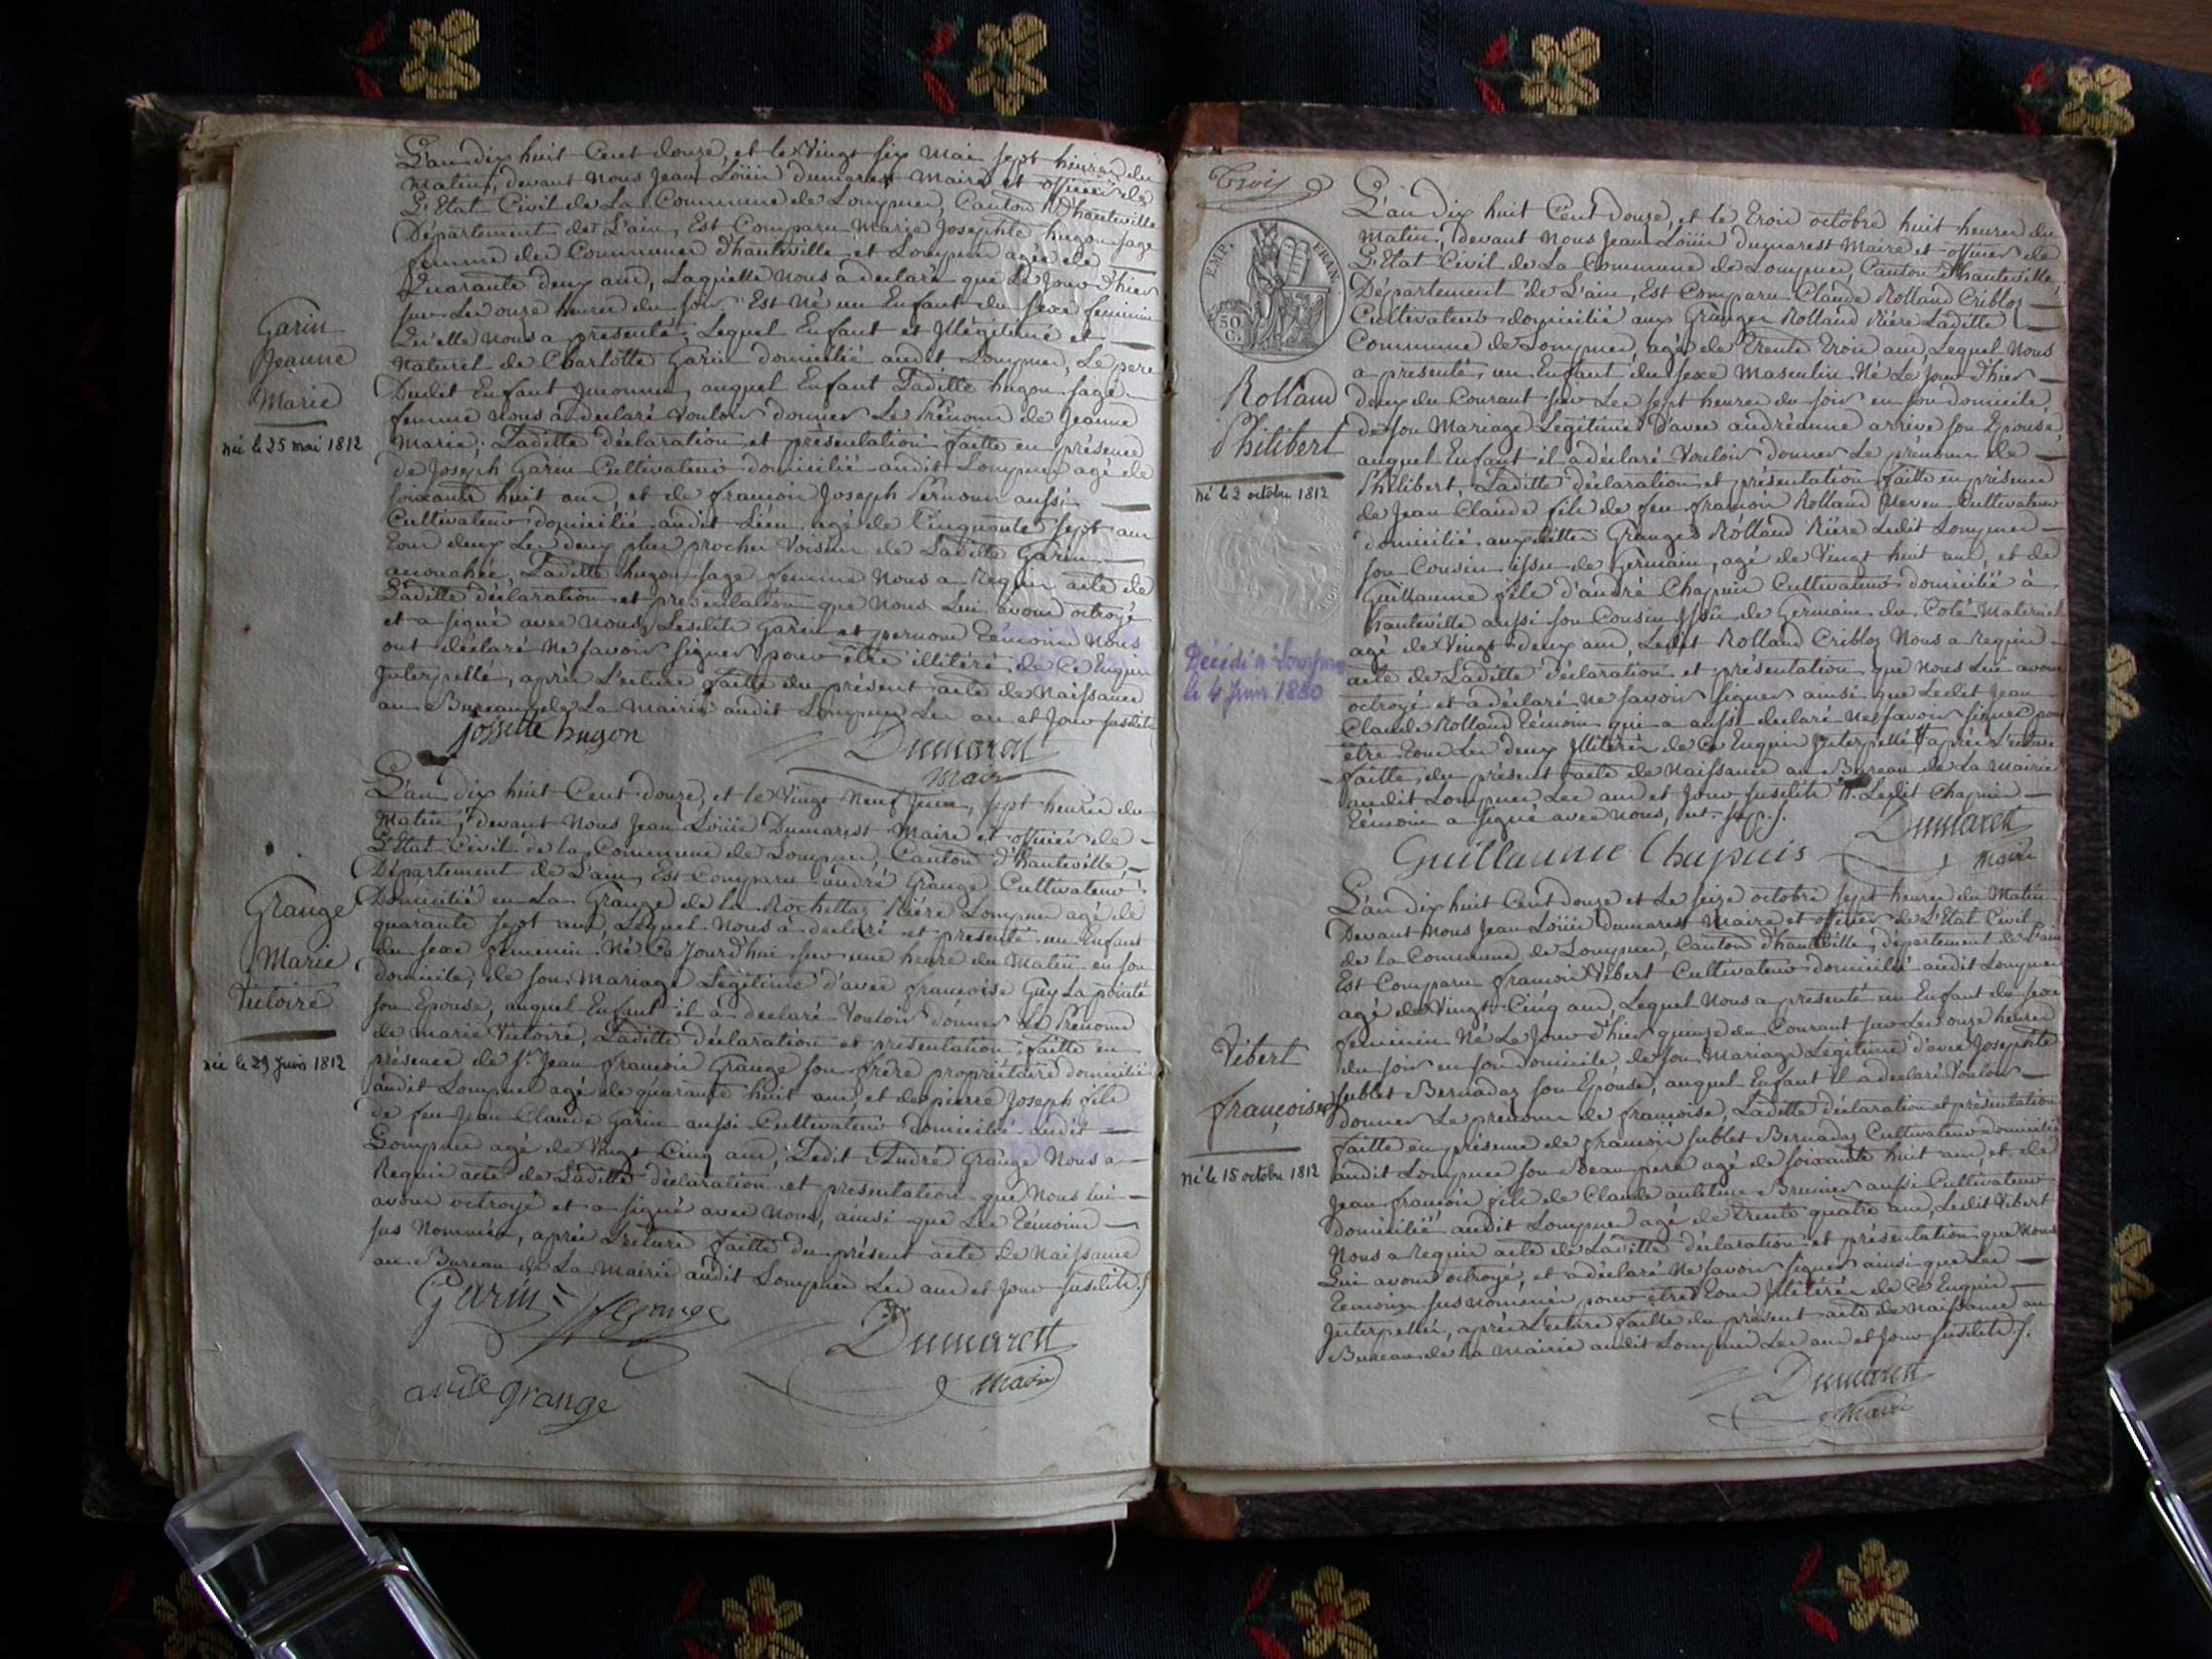 L'an dix huit Cent douze, et le Vingt six Mai sept heures du
Matin, devant Nous Jean Loüis Dumarest Maire et officier de
L'Etat Civil de La Commune de Lompner, Canton D'hauteville
Département de L'ain, Est Comparu Marie Josephte hugon sage
femme des Communes d'hauteville et Lompner agée de
Quarante deux ans, Laquelle Nous a declaré que Le Jour d'hier
sur Les onze heures du soir Est Né un Enfant du sexe feminin
Qu'elle Nous a presenté, Lequel Enfant et Jllégitime et
Naturel de Charlotte Garin domicilié audit Lompner, Le pere
Dudit Enfant Jnconnu, auquel Enfant Laditte hugon sage
femme Nous a declaré Vouloir donner Le Prénom de Jeanne
Marie; Laditte déclaration et présentation faitte en présence
de Joseph Garin Cultivateur domicilié audit Lompner agé de
soixante huit ans, et de françois Joseph Pernoun aussi
Cultivateur domicilié audit Liéu, agé de Cinquante sept ans
Tous deux Les deux plus proches Voisins de Laditte Garin
accouchée, Laditte hugon sage femme Nous a Requis acte de
Laditte déclaration et presentation que Nous Lui avons octroyé
et a signé avec Nous, Lesdits Garin et pernoun Témoins Nous
ont déclaré Ne savoir signer pour être illitéré, de Ce Enquis
Jnterpellé, après L'ecture faitte du présent acte de Naissance
au Bureau de La Mairie audit Lompner Les an et Jour susdits
Garin
Jeanne
Marie
Né le 25 mai 1812
josette hugon
Dumarest
Maire
L'an dix huit Cent douze, et le Vingt Neuf Juin, sept heures du
Matin, devant Nous Jean Loüis Dumarest Maire et officier de
L'Etat Civil de la Commune de Lompner, Canton d'hauteville,
Département de L'ain, Est Comparu andré Grange Cultivateur
Domicilié en La Grange de la Rochettaz Riére Lompner agé de
quarante sept ans, Lequel Nous a déclaré et presenté un Enfant
du sexe feminin Né Ce Jourd'hui sur une heure du Matin en son
domicile, de son Mariage Légitime d'avec françoise Guy La pointe
son Epouse, auquel Enfant il a declaré Vouloir donner Le Prénom
de marie Victoire, Laditte déclaration et presentation faitte en
présence de Sr. Jean françois Grange son frère propriétaire domicilié
audit Lompner agé de quarante huit ans, et de pierre Joseph fils
de feu Jean Claude Garin aussi Cultivateur domicilié audit
Lompner agé de Vingt Cinq ans, Ledit André Grange Nous a
Requis acte de Laditte déclaration et presentation que Nous lui
avons octroyé et a signé avec Nous, ainsi que Les Témoins
sus Nommés, après L'ecture faitte du présent acte de Naissance
au Bureau de La Mairie audit Lompner Les an et Jour susdits
Grange
Marie
Victoire
Née le 29 Juin 1812
Garin
Grange
Dumarest
Maire
andré grange
Trois
EMP. FRAN.
50
C.
L'an dix huit Cent douze, et le Trois octobre huit heures du
Matin, devant Nous Jean Loüis Dumarest Maire et officier de
L'Etat Civil de La Commune de Lompner, Canton d'hauteville,
Département de L'ain, Est Comparu Claude Rolland Cribloz
Cultivateur domicilié aux Granges Rolland Riére Laditte
Commune de Lompner, agé de Trente Trois ans, Lequel Nous
a presenté, un Enfant du sexe Masculin Né Le Jour d'hier
deux du Courant sur Les sept heures du soir en son domicile,
de son Mariage Légitime D'avec andréanne arrive son Epouse,
auquel Enfant il a déclaré Vouloir donner Le prénom de
Philibert, Laditte déclaration et présentation faitte en présence
de Jean Claude fils de feu françois Rolland Neveu Cultivateur
domicilié auxdittes Granges Rolland Riére Ledit Lompner
son Cousin issu de Germain, agé de Vingt huit ans, et de
Guillaume fils d'andré Chapuis Cultivateur domicilié à
hauteville aussi son Cousin Jssu de Germain du Coté Maternel
agé de Vingt deux ans, Ledit Rolland Cribloz Nous a Requis
acte de Laditte déclaration et présentation que Nous Lui avons
octroyé et a déclaré Ne savoir signer ainsi que Ledit Jean
Claude Rolland Témoin qui a aussi declaré Ne savoir signer pour
être Tous Les deux Jllitérés de Ce Enquis Jnterpellé après L'ecture
faitte du présent acte de Naissance au Bureau de La Mairie
audit Lompner Les an et Jour susdits. Ledit Chapuis
Témoin a signé avec Nous,
Rolland
Philibert
Né le 2 octobre 1812
Décédé à Lompnes
le 4 Juin 1880
Guillaume Chapuis
Dumarest
Maire
L'an dix huit Cent douze et Le seize octobre sept heures du Matin
Devant Nous Jean Loüis Dumarest Maire et officier de L'Etat Civil
de la Commune de Lompner, Canton d'hauteville, département de L'ain
Est Comparu françois Vibert Cultivateur domicilié audit Lompner
agé de Vingt Cinq ans, Lequel Nous a presenté un Enfant du sexe
feminin Né Le Jour d'hier quinze du Courant sur Les onze heures
du soir en son domicile de son Mariage Légitime d'avec Josephte
sublet Bernadaz son Epouse, auquel Enfant il a declaré Vouloir
donner Le prenom de françoise, Laditte déclaration et présentation
faitte en présence de françois sublet Bernadaz Cultivateur domicilié
audit Lompner son Beau pere agé de soixante huit ans, et de
Jean françois fils de Claude antelme Brunier aussi Cultivateur
Domicilié audit Lompner agé de Trente quatre ans, Ledit Vibert
Nous a requis acte de Laditte déclaration et présentation que Nous
Lui avons octroyé, et a déclaré Ne savoir signer ainsi que Les
Témoins sus Nommés pour être Tous Jllitérés de Ce Enquis
Jnterpellés, après L'ecture faitte du présent acte de Naissance au
Bureau de La Mairie audit Lompner Les an et Jour susdits
Vibert
françoise
Né le 15 octobre 1812
Dumarest
Maire